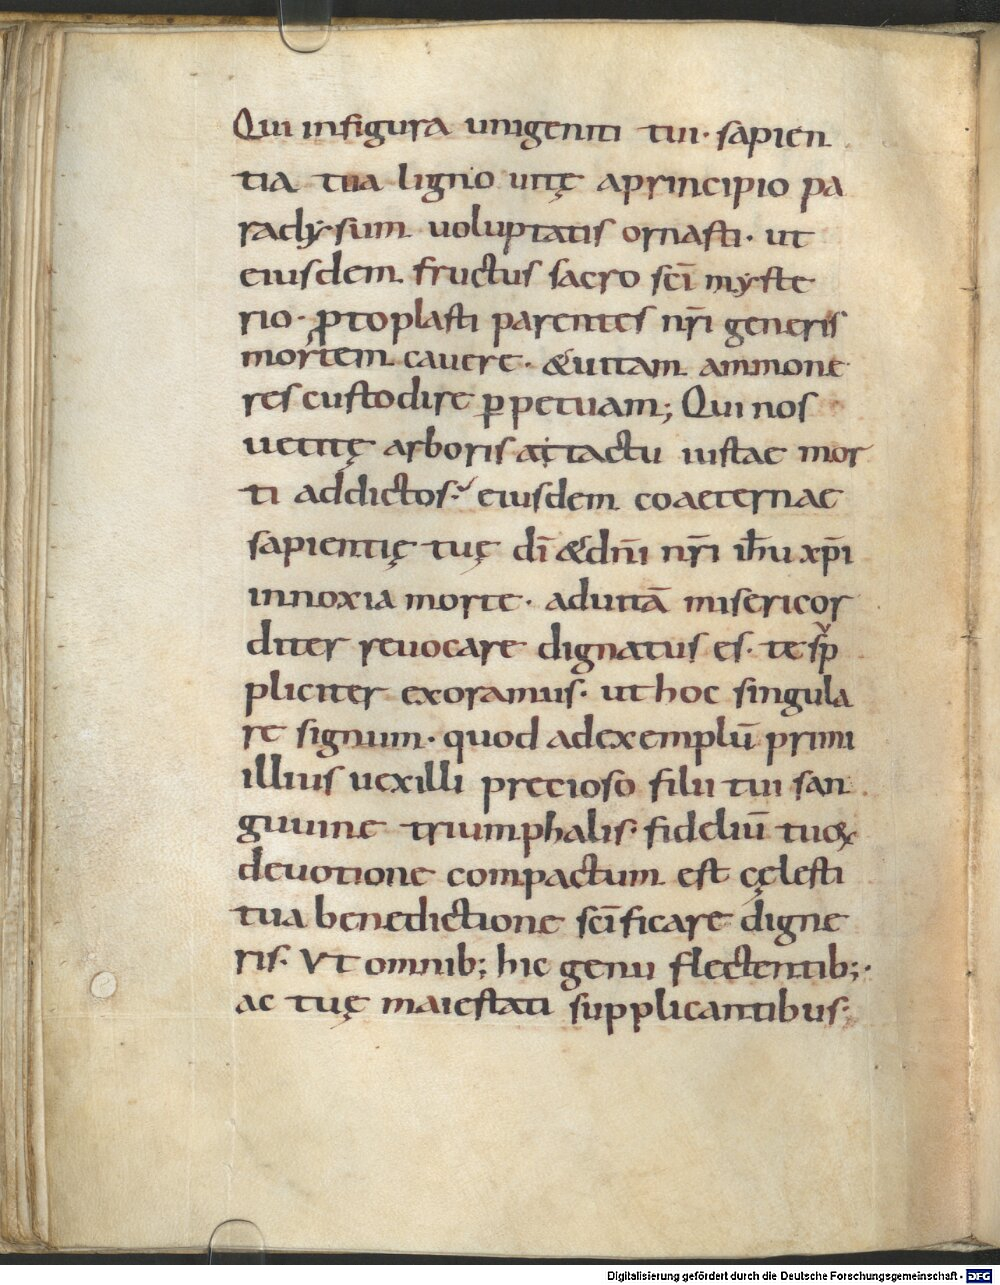 Qui infigura unigeniti tui· sapien
tia tua ligno uitę aprincipio pa
radẏsum uoluptatis ornasti· ut
eiusdem fructus sacro sc̄i mẏste
rio· ꝓtoplasti parentes nr̄i generis
mortem cauere· &uitam ammone
res custodire ꝑpetuam; Qui nos
uetitę arboris attactu iustae mor
ti addictos· eiusdem coaeternae
sapientię tuę dī &dn̄i nr̄i ih̄u xp̄i
innoxia morte· aduitā misericor
diter reuocare dignatus es· te sup
pliciter exoramus· ut hoc singula
re signum· quod adexemplū primi
illius uexilli precioso filii tui san
guuine triumphalis· fideliū tuoꝝ
deuotione compactum est cęlesti
tua benedictione sc̄ificare digne
ris· VT omnib; hic genu flectentib;·
ac tuę maiestati supplicantibus·
Digitalisierung gefördert durch die Deutsche Forschungsgemeinschaft - DFG